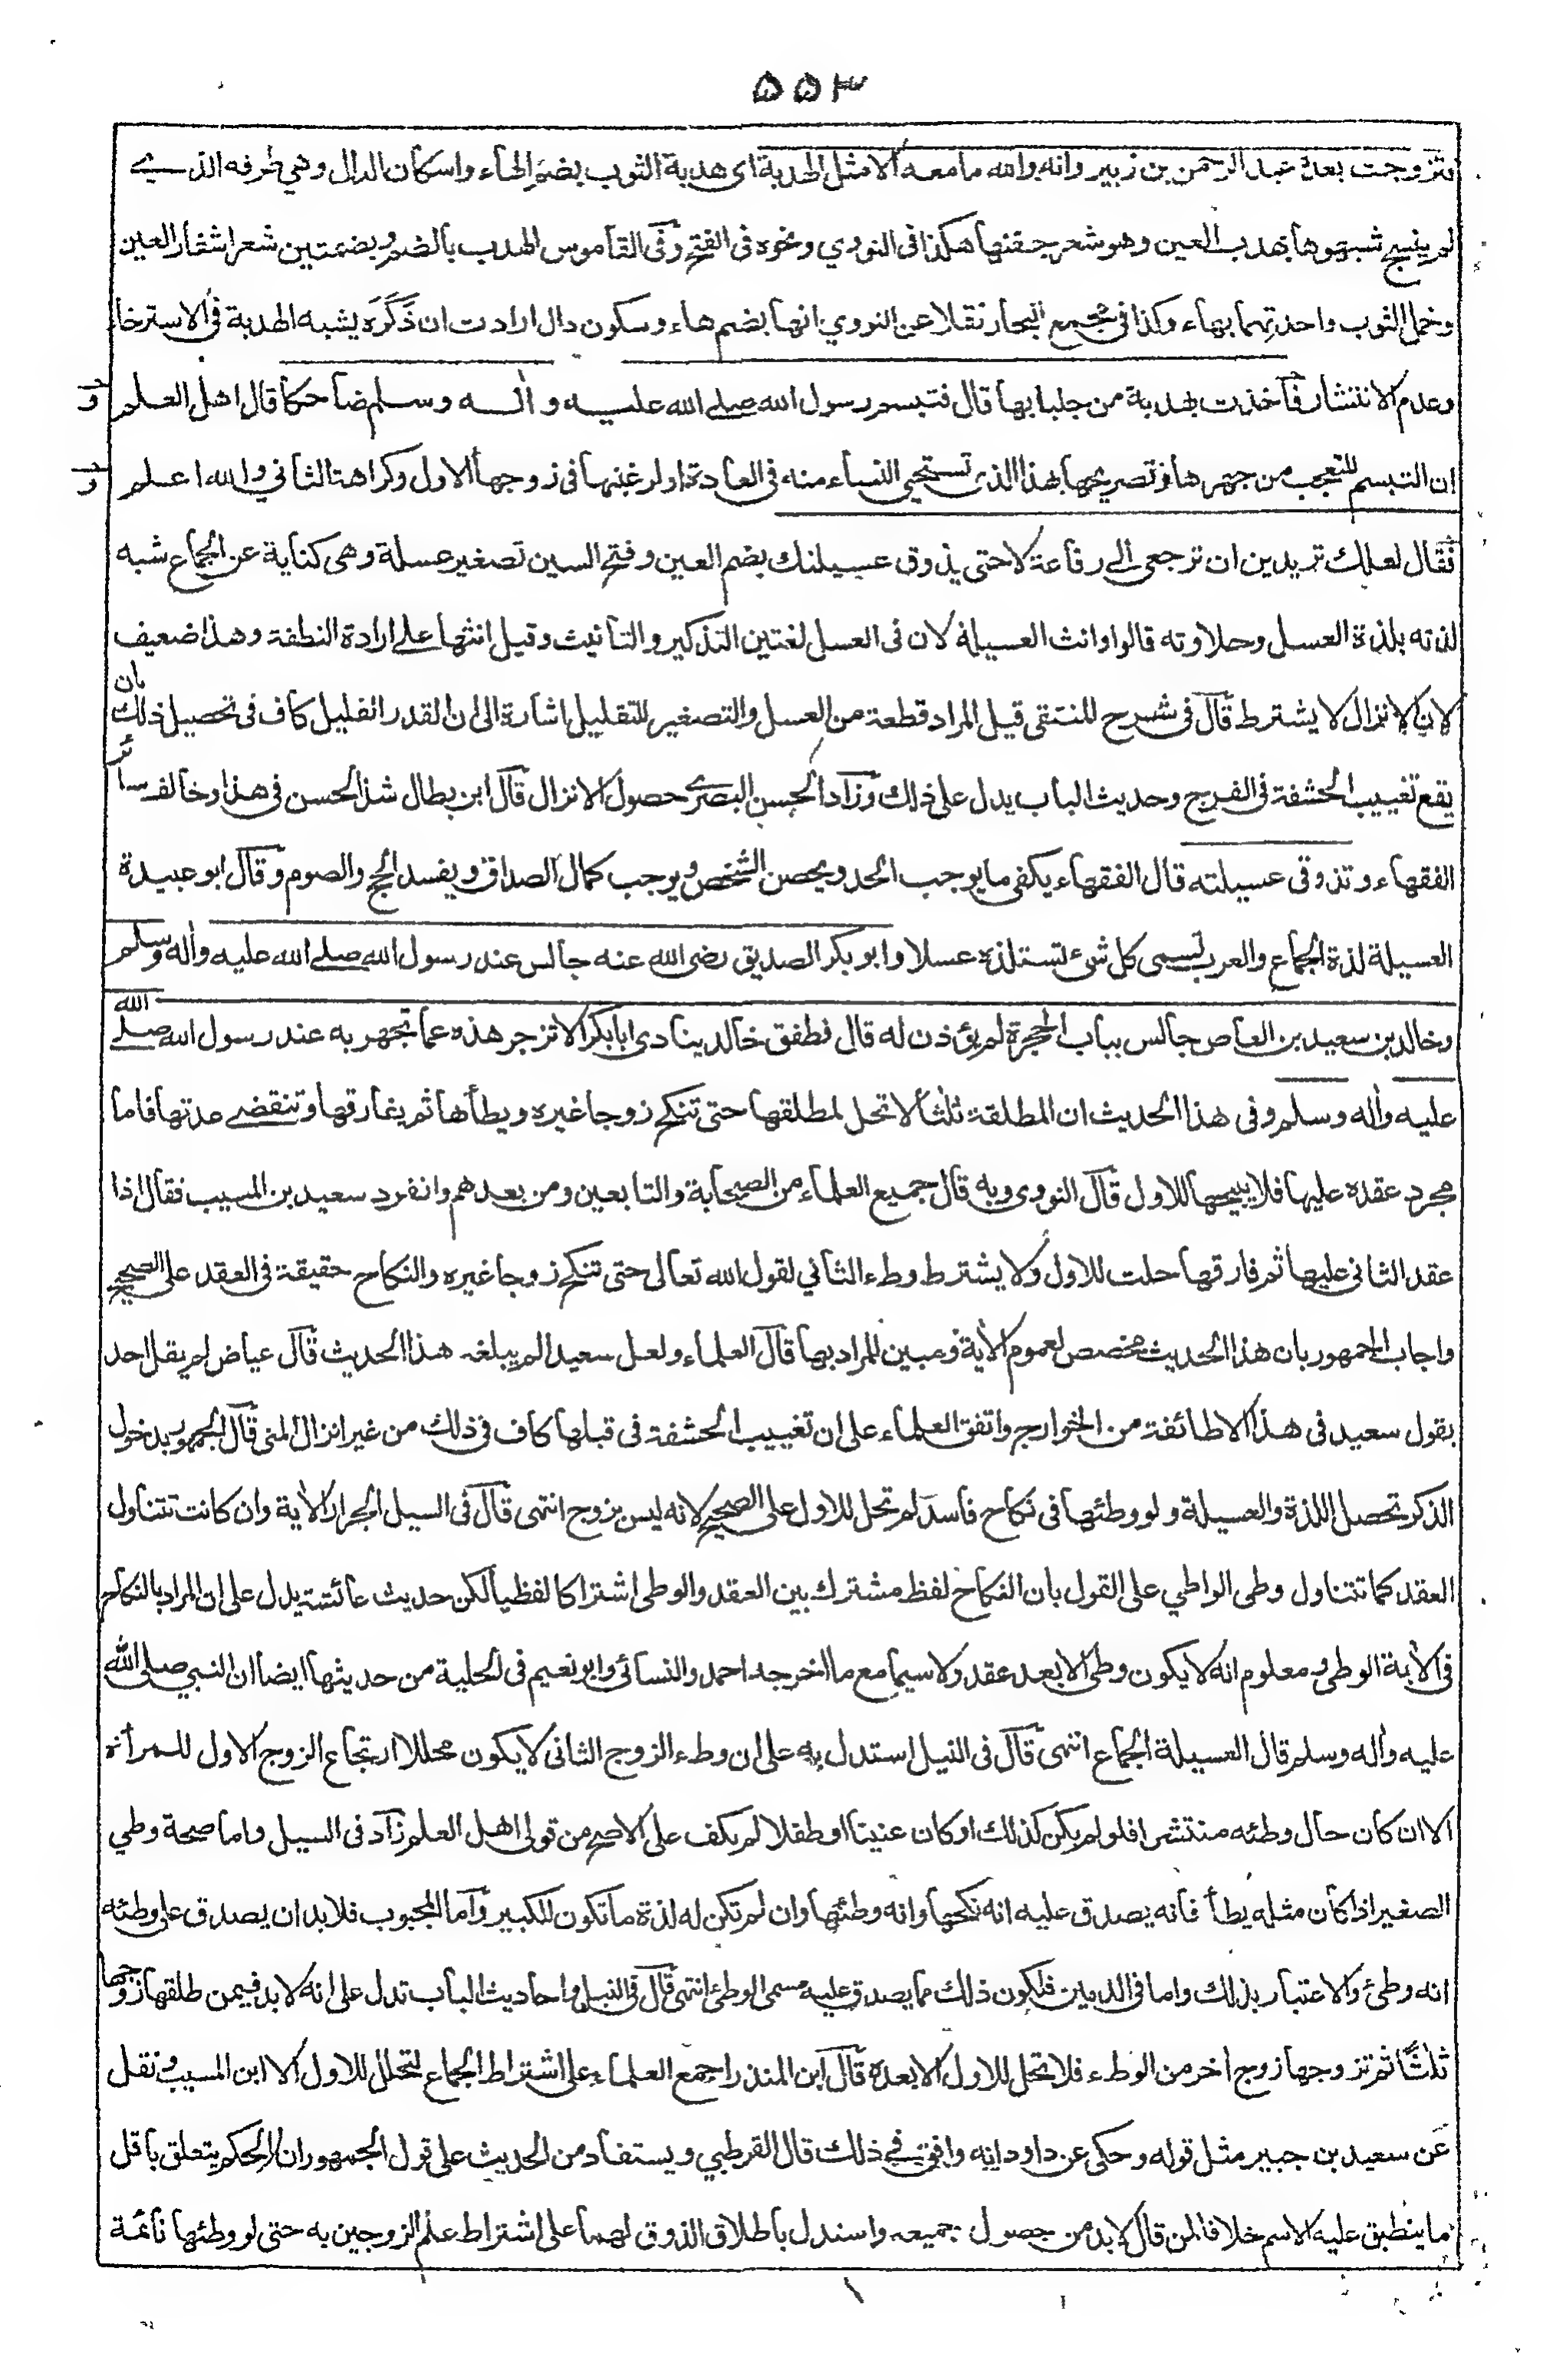 ۵۵۳
فتزوجت بعدہ عبد الرحمن بن زبیر وانہ واللہ مامعہ الا مثل الھدبۃ ای ھدبۃ الثوب بضم الھاء واسکان الدال وھی طرفہ الذے
لم ینسج شبھوھا بھدب العین وھو شعر جفنھا ھکذا فی النووی ونحوہ فی الفتح وفی القاموس الھدب بالضم وبضمتین شعر اشفار العین
وخمل الثوب واحدتھما بھاء وکذا فی مجمع البحار نقلا عن النووی انھا بضم ھاء وسکون دال ارادت ان ذَکَرہ یشبہ الھدبۃ فی الاسترخاء
وعدم الانتشار فاخذت بھدبۃ من جلبابھا قال فتبسم رسول اللہ صلے اللہ علیہ واٰلہ وسلم ضاحکا قال اھل العلم
ان التبسم للتعجب من جھرھا وتصریحھا بھذا الذی تستحیی النساء منہ فی العادۃ اولرغبتھا فی زوجھا الاول وکراھتا الثانی واللہ اعلم
فقال لعلک تریدین ان ترجعی الی رفاعۃ لاحتی یذوق عسیلتک بضم العین وفتح السین تصغیر عسلۃ وھی کنایۃ عن الجماع شبہ
لذتہ بلذۃ العسل وحلاوتہ قالوا وانث العسیلۃ لان فی العسل لغتین التذکیر والتانیث وقیل انثھا علے ارادۃ النطفۃ وھذا ضعیف
لان الانزال لا یشترط قال فی شرح المنتقی قیل المراد قطعۃ من العسل والتصغیر للتقلیل اشارۃ الی ان القدر القلیل کاف فی تحصیل ذلک بان
یقع تغییب الحشفۃ فی الفرج وحدیث الباب یدل علی ذلک وزاد الحسن البصرے حصول الانزال قال ابن بطال شذ الحسن فی ھذا وخالف سائر
الفقھاء وتذوقی عسیلتہ قال الفقھاء یکفی مایوجب الحد ویحصن الشخص ویوجب کمال الصداق ویفسد الحج والصوم وقال ابوعبیدۃ
العسیلۃ لذۃ الجماع والعرب تسمی کل شئ تستلذہ عسلا وابوبکر الصدیق رضی اللہ عنہ جالس عند رسول اللہ صلے اللہ علیہ واٰلہ وسلم
وخالد بن سعید بن العاص جالس بباب الحجرۃ لم یؤذن لہ قال فطفق خالد ینادی ابابکر الا تزجر ھذہ عما تجھر بہ عند رسول اللہ صلے اللہ
علیہ واٰلہ وسلم وفی ھذا الحدیث ان المطلقۃ ثلثا لا تحل لمطلقھا حتی تنکح زوجا غیرہ ویطأھا ثم یفارقھا وتنقضے عدتھا فاما
مجرد عقدہ علیھا فلا یبیحھا للاول قال النووی وبہ قال جمیع العلماء من الصحابۃ والتابعین ومن بعدھم وانفرد سعید بن المسیب فقال اذا
عقد الثانی علیھا ثم فارقھا حلت للاول ولا یشترط وطء الثانی لقول اللہ تعالی حتی تنکح زوجا غیرہ والنکاح حقیقۃ فی العقد علی الصحیح
واجاب الجمھور بان ھذا الحدیث مخصص لعموم الاٰیۃ ومبین للمراد بھا قال العلماء ولعل سعیدا لم یبلغہ ھذا الحدیث قال عیاض لم یقل احد
بقول سعید فی ھذا الا طائفۃ من الخوارج واتفق العلماء علی ان تغییب الحشفۃ فی قبلھا کاف فی ذلک من غیر انزال المنی قال الجمھور بدخول
الذکر تحصل اللذۃ والعسیلۃ ولو وطئھا فی نکاح فاسد لم تحل للاول علی الصحیح لانہ لیس بزوج انتھی قال فی السیل الجرار الاٰیۃ وان کانت تتناول
العقد کما تتناول وطی الواطی علی القول بان النکاح لفظ مشترک بین العقد والوطی اشتراکا لفظیا لکن حدیث عائشۃ یدل علی ان المراد بالنکاح
فی الاٰیۃ الوطی ومعلوم انہ لا یکون وطئ الا بعد عقد ولاسیما مع ما اخرجہ احمد والنسائی وابونعیم فی الحلیۃ من حدیثھا ایضا ان النبی صلی اللہ
علیہ واٰلہ وسلم قال العسیلۃ الجماع انتھی قال فی النیل استدل بہ علی ان وطء الزوج الثانی لا یکون محللا ارتجاع الزوج الاول للمرأۃ
الا ان کان حال وطئہ منتشرا فلو لم یکن کذلک او کان عنینا او طفلا لم یکف علی الاصح من قولی اھل العلم زاد فی السیل واما صحۃ وطی
الصغیر اذا کان مثلہ یطأ فانہ یصدق علیہ انہ نکحھا وانہ وطئھا وان لم تکن لہ لذۃ ما تکون للکبیر واما المجبوب فلابد ان یصدق علی وطئہ
انہ وطئ والاعتبار بذلک واما فی الدمین فلکون ذلک مما یصدق علیہ مسمی الوطئ انتھی قال فی النیل واحادیث الباب تدل علی انہ لابد فیمن طلقھا زوجھا
ثلثًا ثم تزوجھا زوج اٰخر من الوطء فلا تحل للاول الا بعدہ قال ابن المنذر اجمع العلماء علی اشتراط الجماع لتحل للاول الا ابن المسیب ونقل
عن سعید بن جبیر مثل قولہ وحکی عن داود انہ وافق فے ذلک قال القرطبی ویستفاد من الحدیث علی قول الجمھور ان الحکم یتعلق باقل
ما ینطبق علیہ الاسم خلافا لمن قال لابد من حصول جمیعہ واستدل باطلاق الذوق لھما علی اشتراط علم الزوجین بہ حتی لو وطئھا نائمۃ